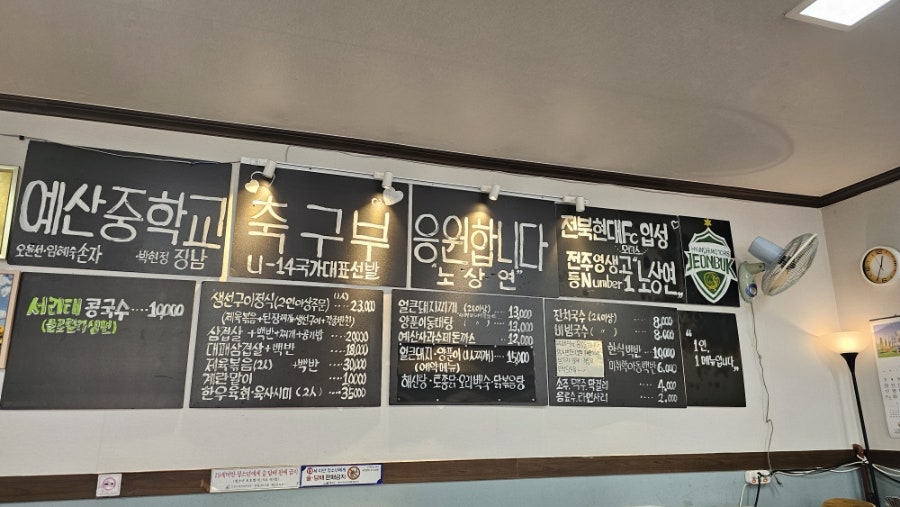 예산중학교
오천선·임혜숙 손자
박현정 장남
축구부
U-14 국가대표선발
응원합니다
"노상연"
전북현대Fc 입성
전주영생고
등Number 1 노상연"
HYUNDAI MOTORS
JEONBUK
서리태 콩국수 ···· 10,000
생선구이정식 (2인이상주문) ··· 23,000
(제육볶음+된장찌개+생선구이+각종반찬)
삼겹살 +백반+찌개+공기밥 ··· 20,000
대패삼겹살+백반 ···· 18,000
제육볶음(2人) +백반 ···· 30,000
계란말이 ···· 10,000
한우육회·육사시미 (2人) ··· 35,000
얼큰돼지찌개 (2人이상) 13,000
양푼이동태탕 ( 〃 ) 13,000
예산사과수제돈까스 ··· 12,000
얼큰돼지·양푼이 (1人찌개) ··· 15,000
(예약메뉴)
해신탕·토종닭·오리백숙·닭볶음탕
잔치국수 (2人이상) 8,000
비빔국수 ( 〃 ) 8,000
한식백반 ··· 10,000
미취학아동백반 6,000
소주, 맥주, 막걸리 ···· 4,000
음료수, 라면사리 ···· 2,000
1인
1메뉴입니다
19세미만 청소년에게 술·담배 판매 금지
19세 미만 청소년에게
술·담배 판매금지